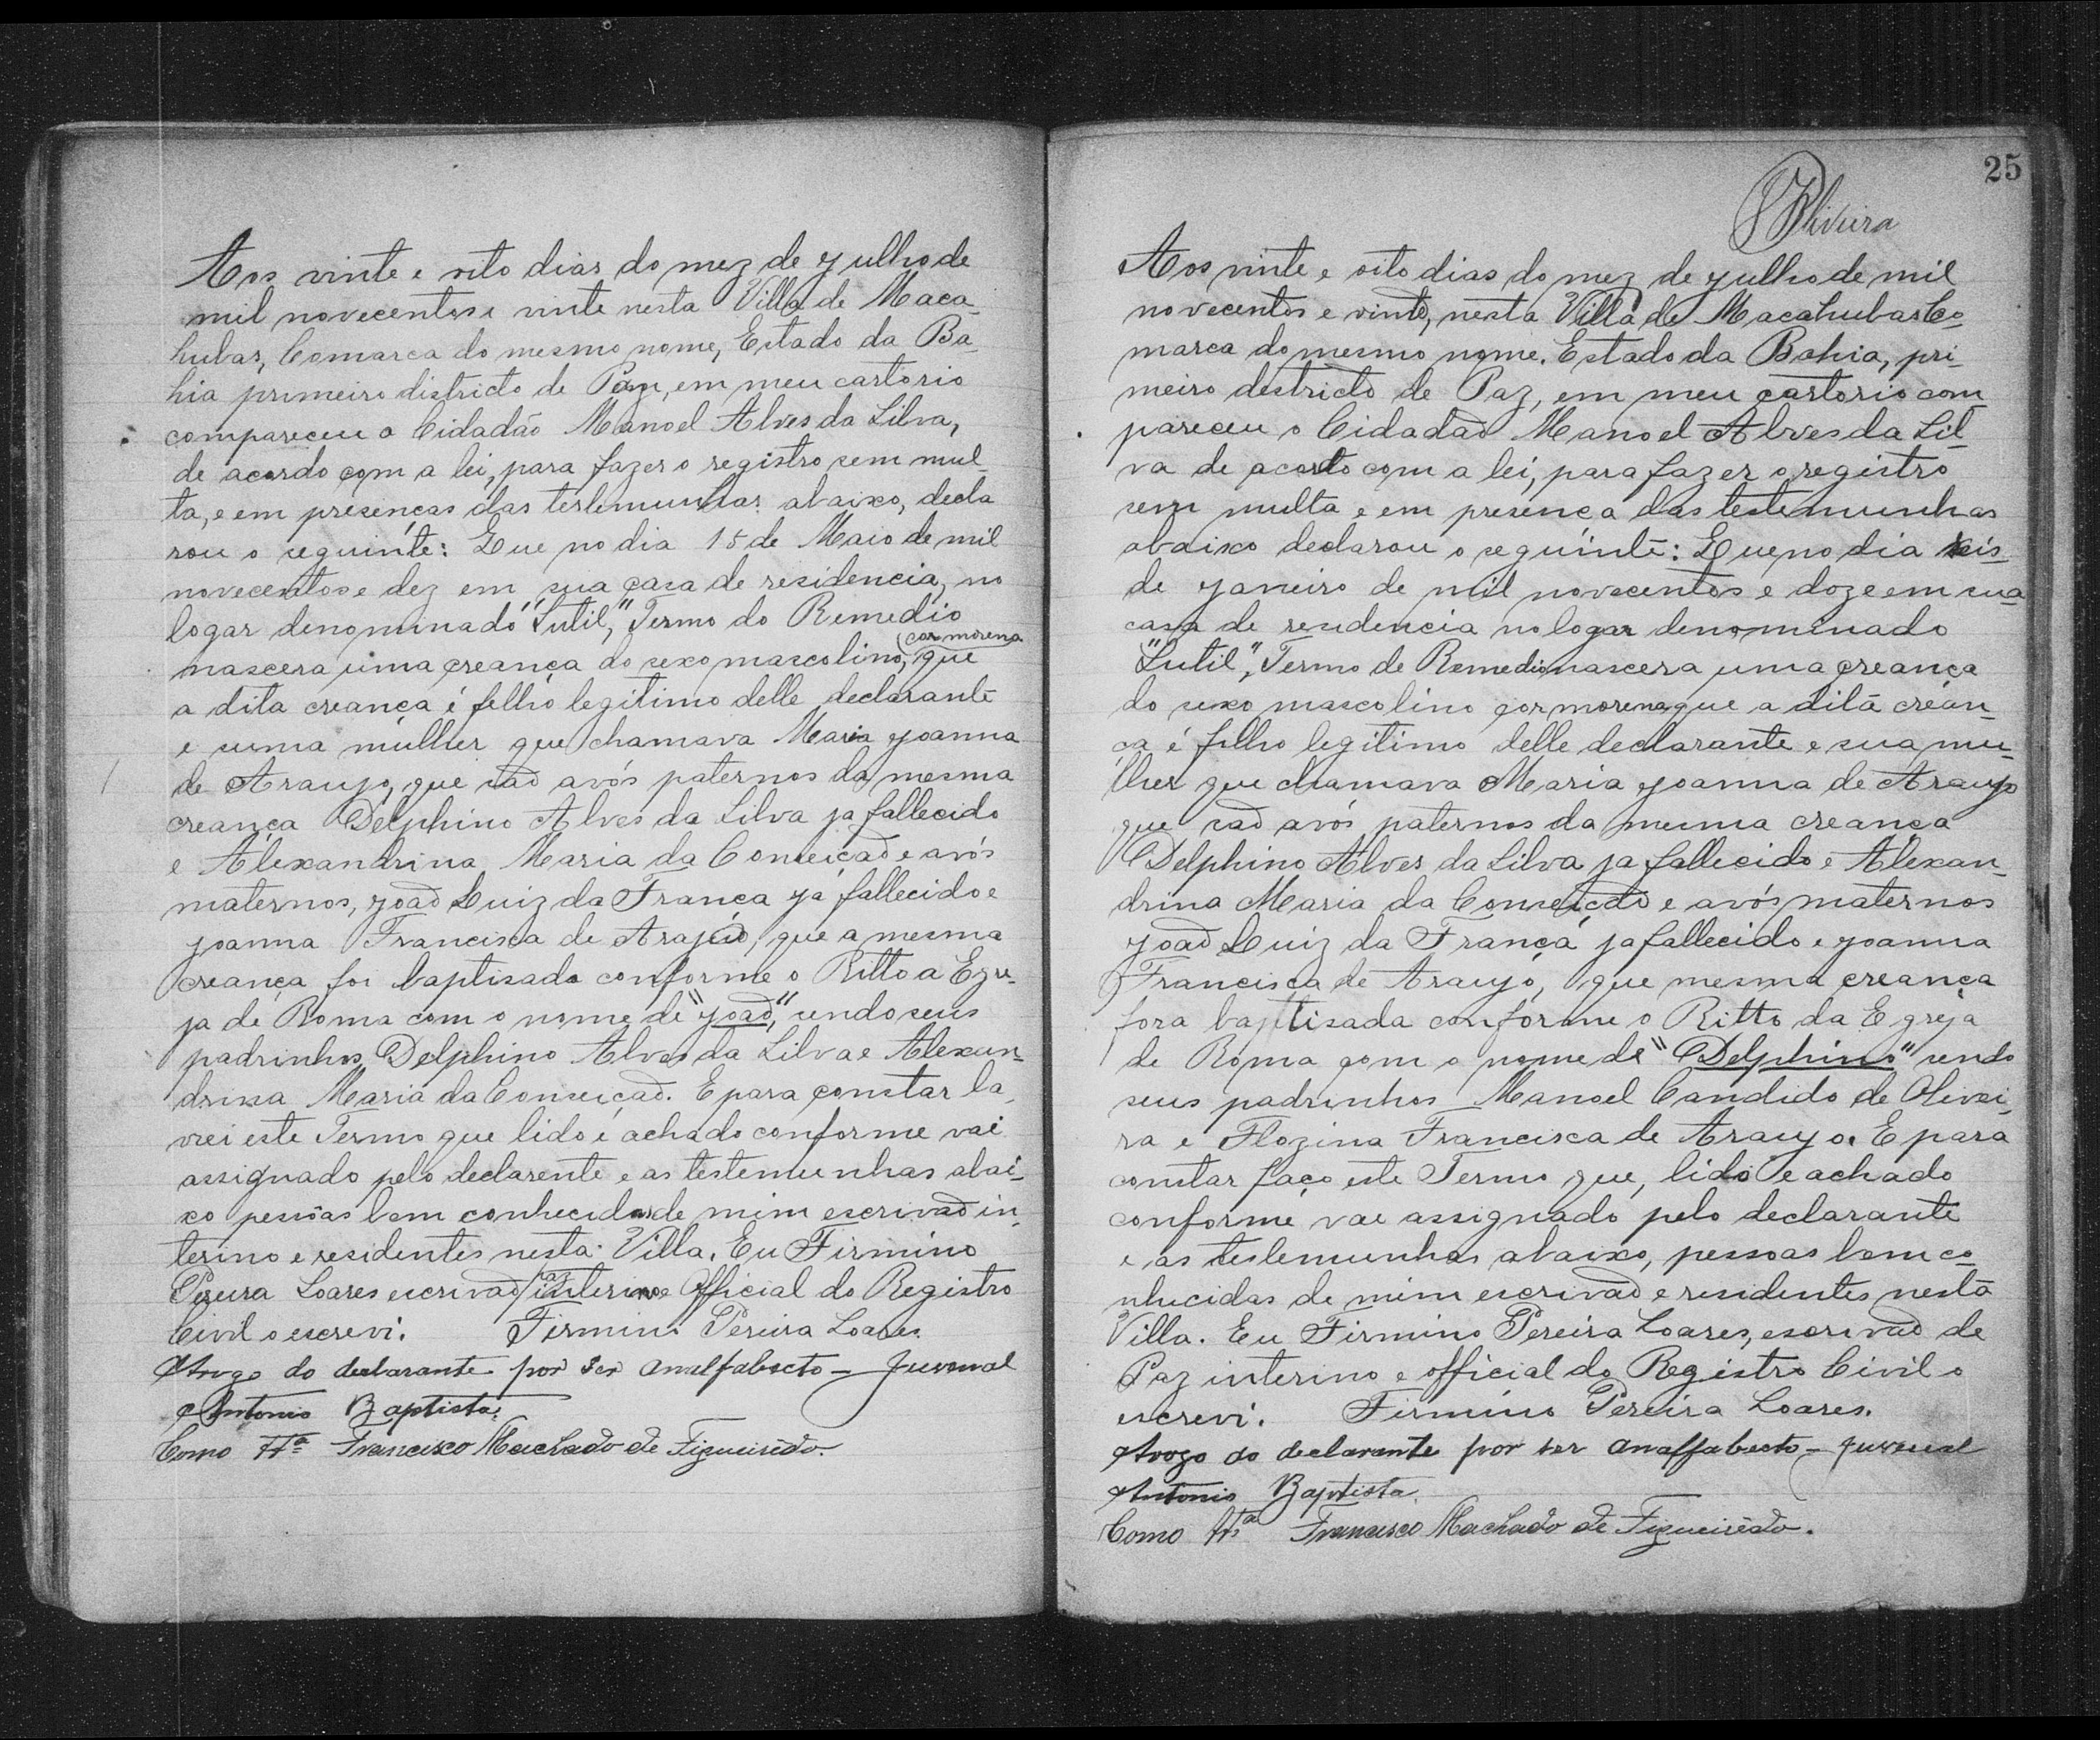 Aos vinte e oito dias do mez de Julho de
mil novecentos e vinte nesta Villa de Maca-
hubas, Comarca do mesmo nome, Estado da Ba-
hia primeiro districto de Paz, em meu cartorio
compareceu o Cidadão Manoel Alves da Silva,
de acordo com a lei, para fazer o registro sem mul-
ta, e em presenças das testemunhas abaixo, decla
rou o seguinte: Que no dia 15 de Maio de mil
novecentos e dez em sua casa de residencia, no
logar denominado "Sutil," Termo do Remedio
cor morena
nascera uma creança do sexo mascolino, que
a dita creança é felho legitimo delle declarante
e suma mulher que chamava Maria Joanna
de Araujo, que saõ avós paternos da mesma
creança Delphino Alves da Silva ja fallecido
e Alexandrina Maria da Conseiçaõ e avós
maternos, Joaõ Luiz da França ja fallecido e
Joanna Francisca de Arajuo, que a mesma
creança foi baptisada conforme o Ritto a Egre-
ja de Roma com o nome de "Joaõ," sendo seus
padrinhos Delphino Alves da Silva e Alexan-
drina Maria da Conseiçaõ. E para constar la
vrei este Termo que lido e achado conforme vai
assignado pelo declarente e as testemunhas abai-
xo pessôas bem conhecidas de mim escrivaõ in-
terino e residentes nesta Villa. Eu Firmino
Pereira Soares escrivaõ interino e Official do Registro
Civil o escrevi. Firmino Pereira Soares.
Arogo do declarante por ser analfabecto - Juvenal
Antonio Baptista.
Como tta Francisco Machado de Figueirêdo.
25
Oliveira
Aos vinte e oito dias do mez de Julho de mil
novecentos e vinte, nesta Villa de Macahubas Co-
marca do mesmo nome. Estado da Bahia, pri-
meiro destricto de Paz, em meu cartorio com
pareceu o Cidadaõ Manoel Alves da Sil-
va de acordo com a lei, para fazer o registro
sem multa e em presença das testemunhas
abaixo declarou o seguinte: Que no dia seis
de Janeiro de mil novecentos e doze em sua
casa de residencia no logar denominado
"Sutil", Termo de Remedio nascera uma creança
do sexo mascolino cor morena, que a dita crean-
ça é filho legitimo delle declarante e sua mu-
lher que chamava Maria Joanna de Araujo
que saõ avós paternos da mesma creança
Delphino Alves da Silva ja fallecido e Alexan-
drina Maria da Conseiçaõ e avós maternos
Joaõ Luiz da França ja fallecido e Joanna
Francisca de Araujo, que mesma creança
fora baptisada conforme o Ritto da Egreja
de Roma com o nome de "Delphino" sendo
seus padrinhos Manoel Candido de Olivei-
ra e Flozina Francisca de Araujo. E para
constar faço este Termo que, lido e achado
conforme vae assignado pelo declarante
e as testemunhas abaixo, pessoas bem co-
nhecidas de mim escrivaõ e residentes nesta
Villa. Eu Firmino Pereira Soares, escrivaõ de
Paz interino e official do Registro Civil o
escrevi. Firmino Pereira Soares.
Arogo do declarante por ser analfabecto - Juvenal
Antonio Baptista.
Como tta Francisco Machado de Figueirêdo.